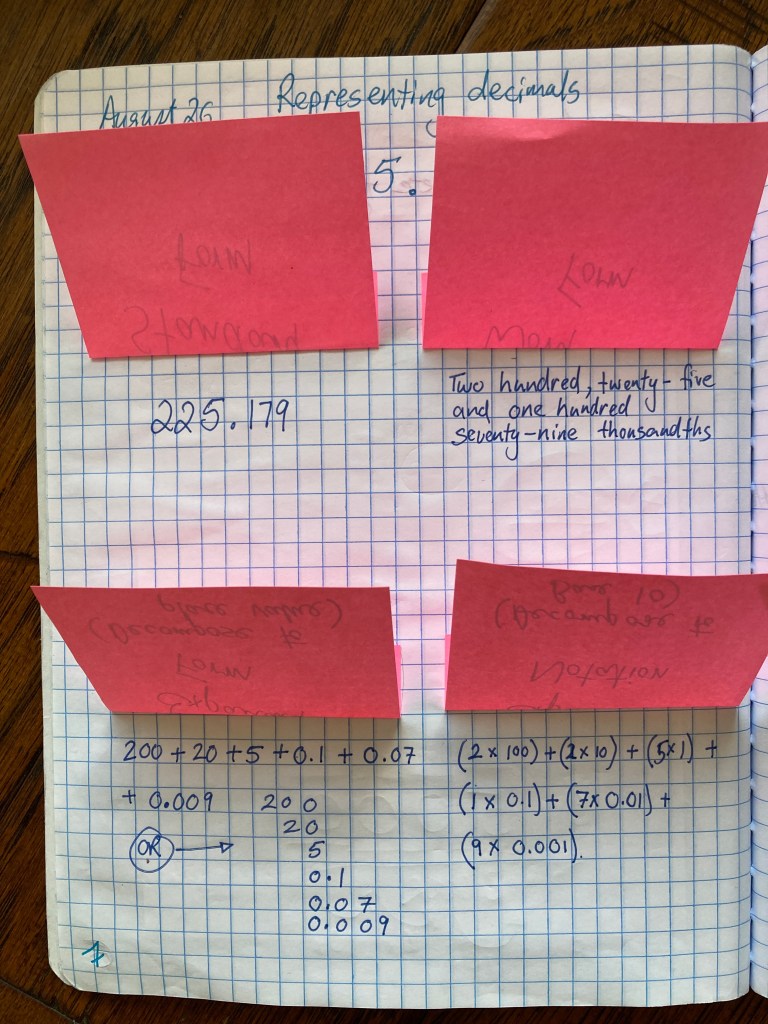 August 26
Representing decimals
5.
Standard
Form
Word
Form
225.179
Two hundred, twenty-five
and one hundred
seventy-nine thousandths
Form
(Decompose to
place value)
Notation
(Decompose to
Base 10)
200 + 20 + 5 + 0.1 + 0.07
+ 0.009
OR
200
20
5
0.1
0.07
0.009
(2 x 100) + (2 x 10) + (5 x 1) +
(1 x 0.1) + (7 x 0.01) +
(9 x 0.001).